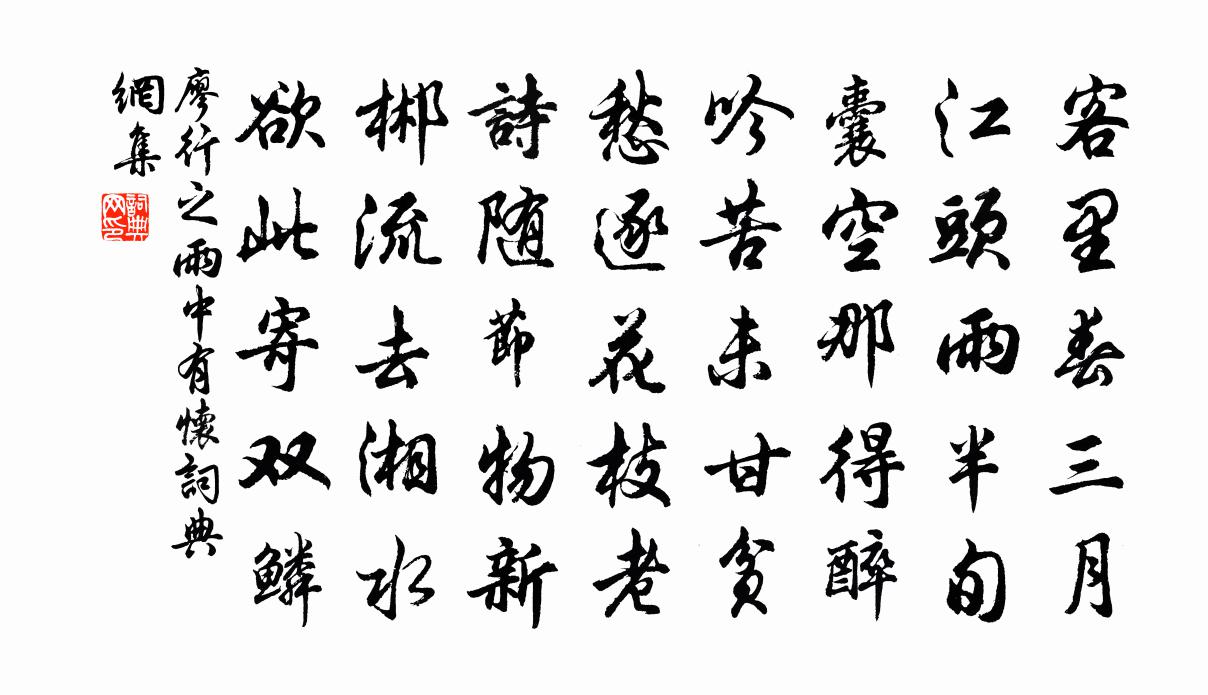 客里春三月
江頭雨半旬
囊空那得醉
吟苦未甘貧
愁逐花枝老
詩随節物新
郴流去湘水
欲此寄双鱗
廖行之雨中有懷詞典
網集
詞典
网印